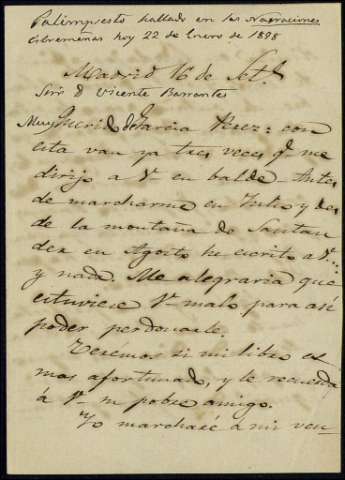 Palimpsesto hallado en las Narraciones
Extremeñas hoy 22 de Enero de 1898
Madrid 16 de Set.
Sr. D. Vicente Barrantes
Muy Querido García Perez: con
esta van ya tres veces q. me
dirijo a V. en balde. Antes
de marcharme en Julio y des
de la montaña de Santan
der en Agosto he escrito a V.
y nada. Me alegraria que
estuviese V. malo para asi
poder perdonarle.
Veremos si mi libro es
mas afortunado, y le recuerda
á V. su pobre amigo.
Yo marcharé á mi ven